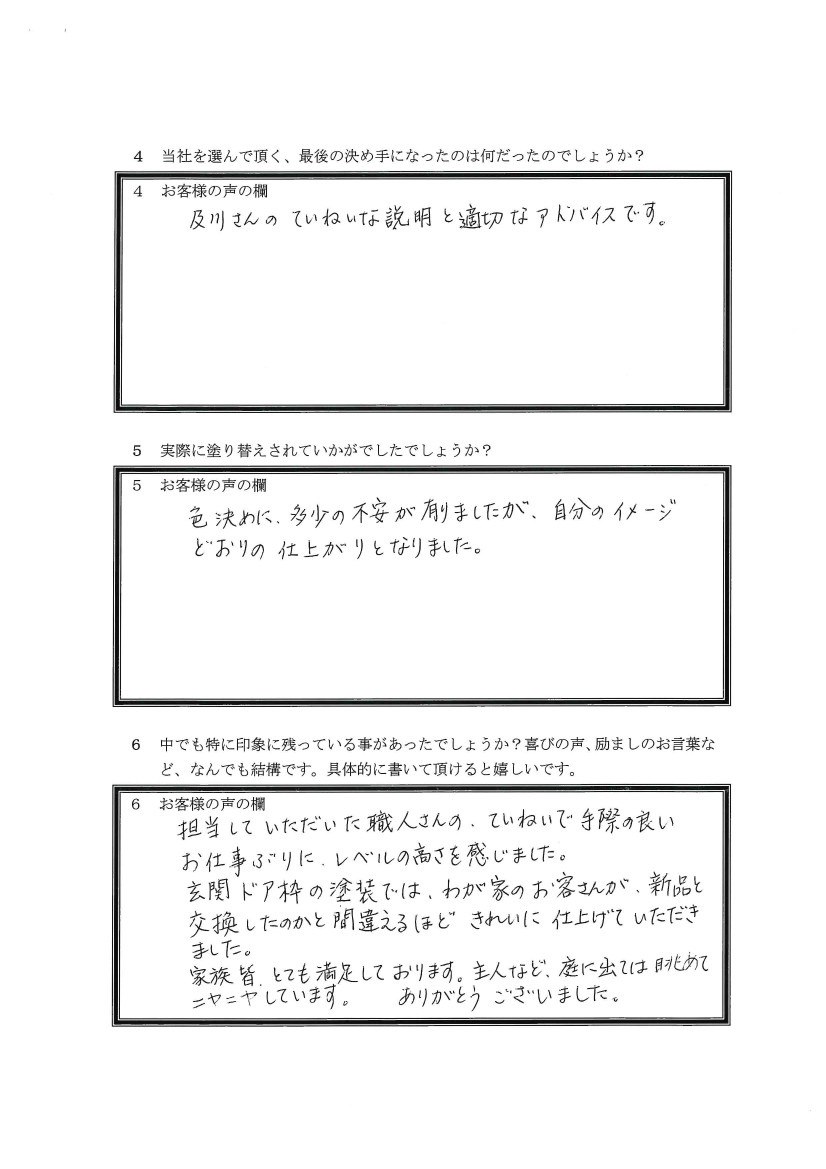 4 当社を選んで頂く、最後の決め手になったのは何だったのでしょうか?
4 お客様の声の欄
及川さんの ていねいな説明と適切なアドバイスです。
5 実際に塗り替えされていかがでしたでしょうか?
5 お客様の声の欄
色決めに、多少の不安が有りましたが、自分のイメージ
どおりの仕上がりとなりました。
6 中でも特に印象に残っている事があったでしょうか?喜びの声、励ましのお言葉な
ど、なんでも結構です。具体的に書いて頂けると嬉しいです。
6 お客様の声の欄
担当していただいた職人さんの、ていねいで手際の良い
お仕事ぶりに、レベルの高さを感じました。
玄関ドア枠の塗装では、わが家のお客さんが、新品と
交換したのかと間違えるほど きれいに仕上げていただき
ました。
家族皆、とても満足しております。主人など、庭に出ては眺めて
ニヤニヤしています。 ありがとうございました。